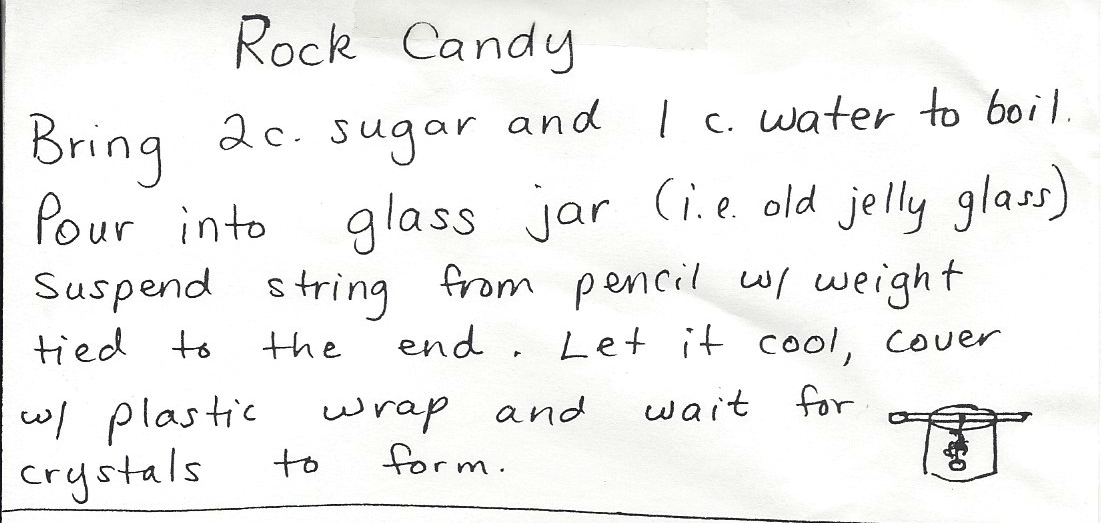 Rock Candy
Bring 2c. sugar and 1 c. water to boil.
Pour into glass jar (i.e. old jelly glass)
Suspend string from pencil w/ weight
tied to the end. Let it cool, cover
w/ plastic wrap and wait for
crystals to form.